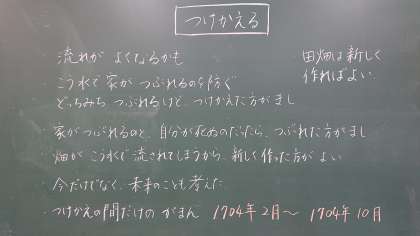 つけかえる
・流れが よくなるかも
田畑は新しく
作ればよい。
・こう水で家が つぶれるのを防ぐ
どっちみち つぶれるけど、つけかえた方がまし
・家がつぶれるのと、自分が死ぬのだったら、つぶれた方がまし
・畑が こう水で 流されてしまうから、新しく作った方が よい
・今だけでなく、未来のことも考えた
・つけかえの間だけの がまん 1704年2月～ 1704年10月